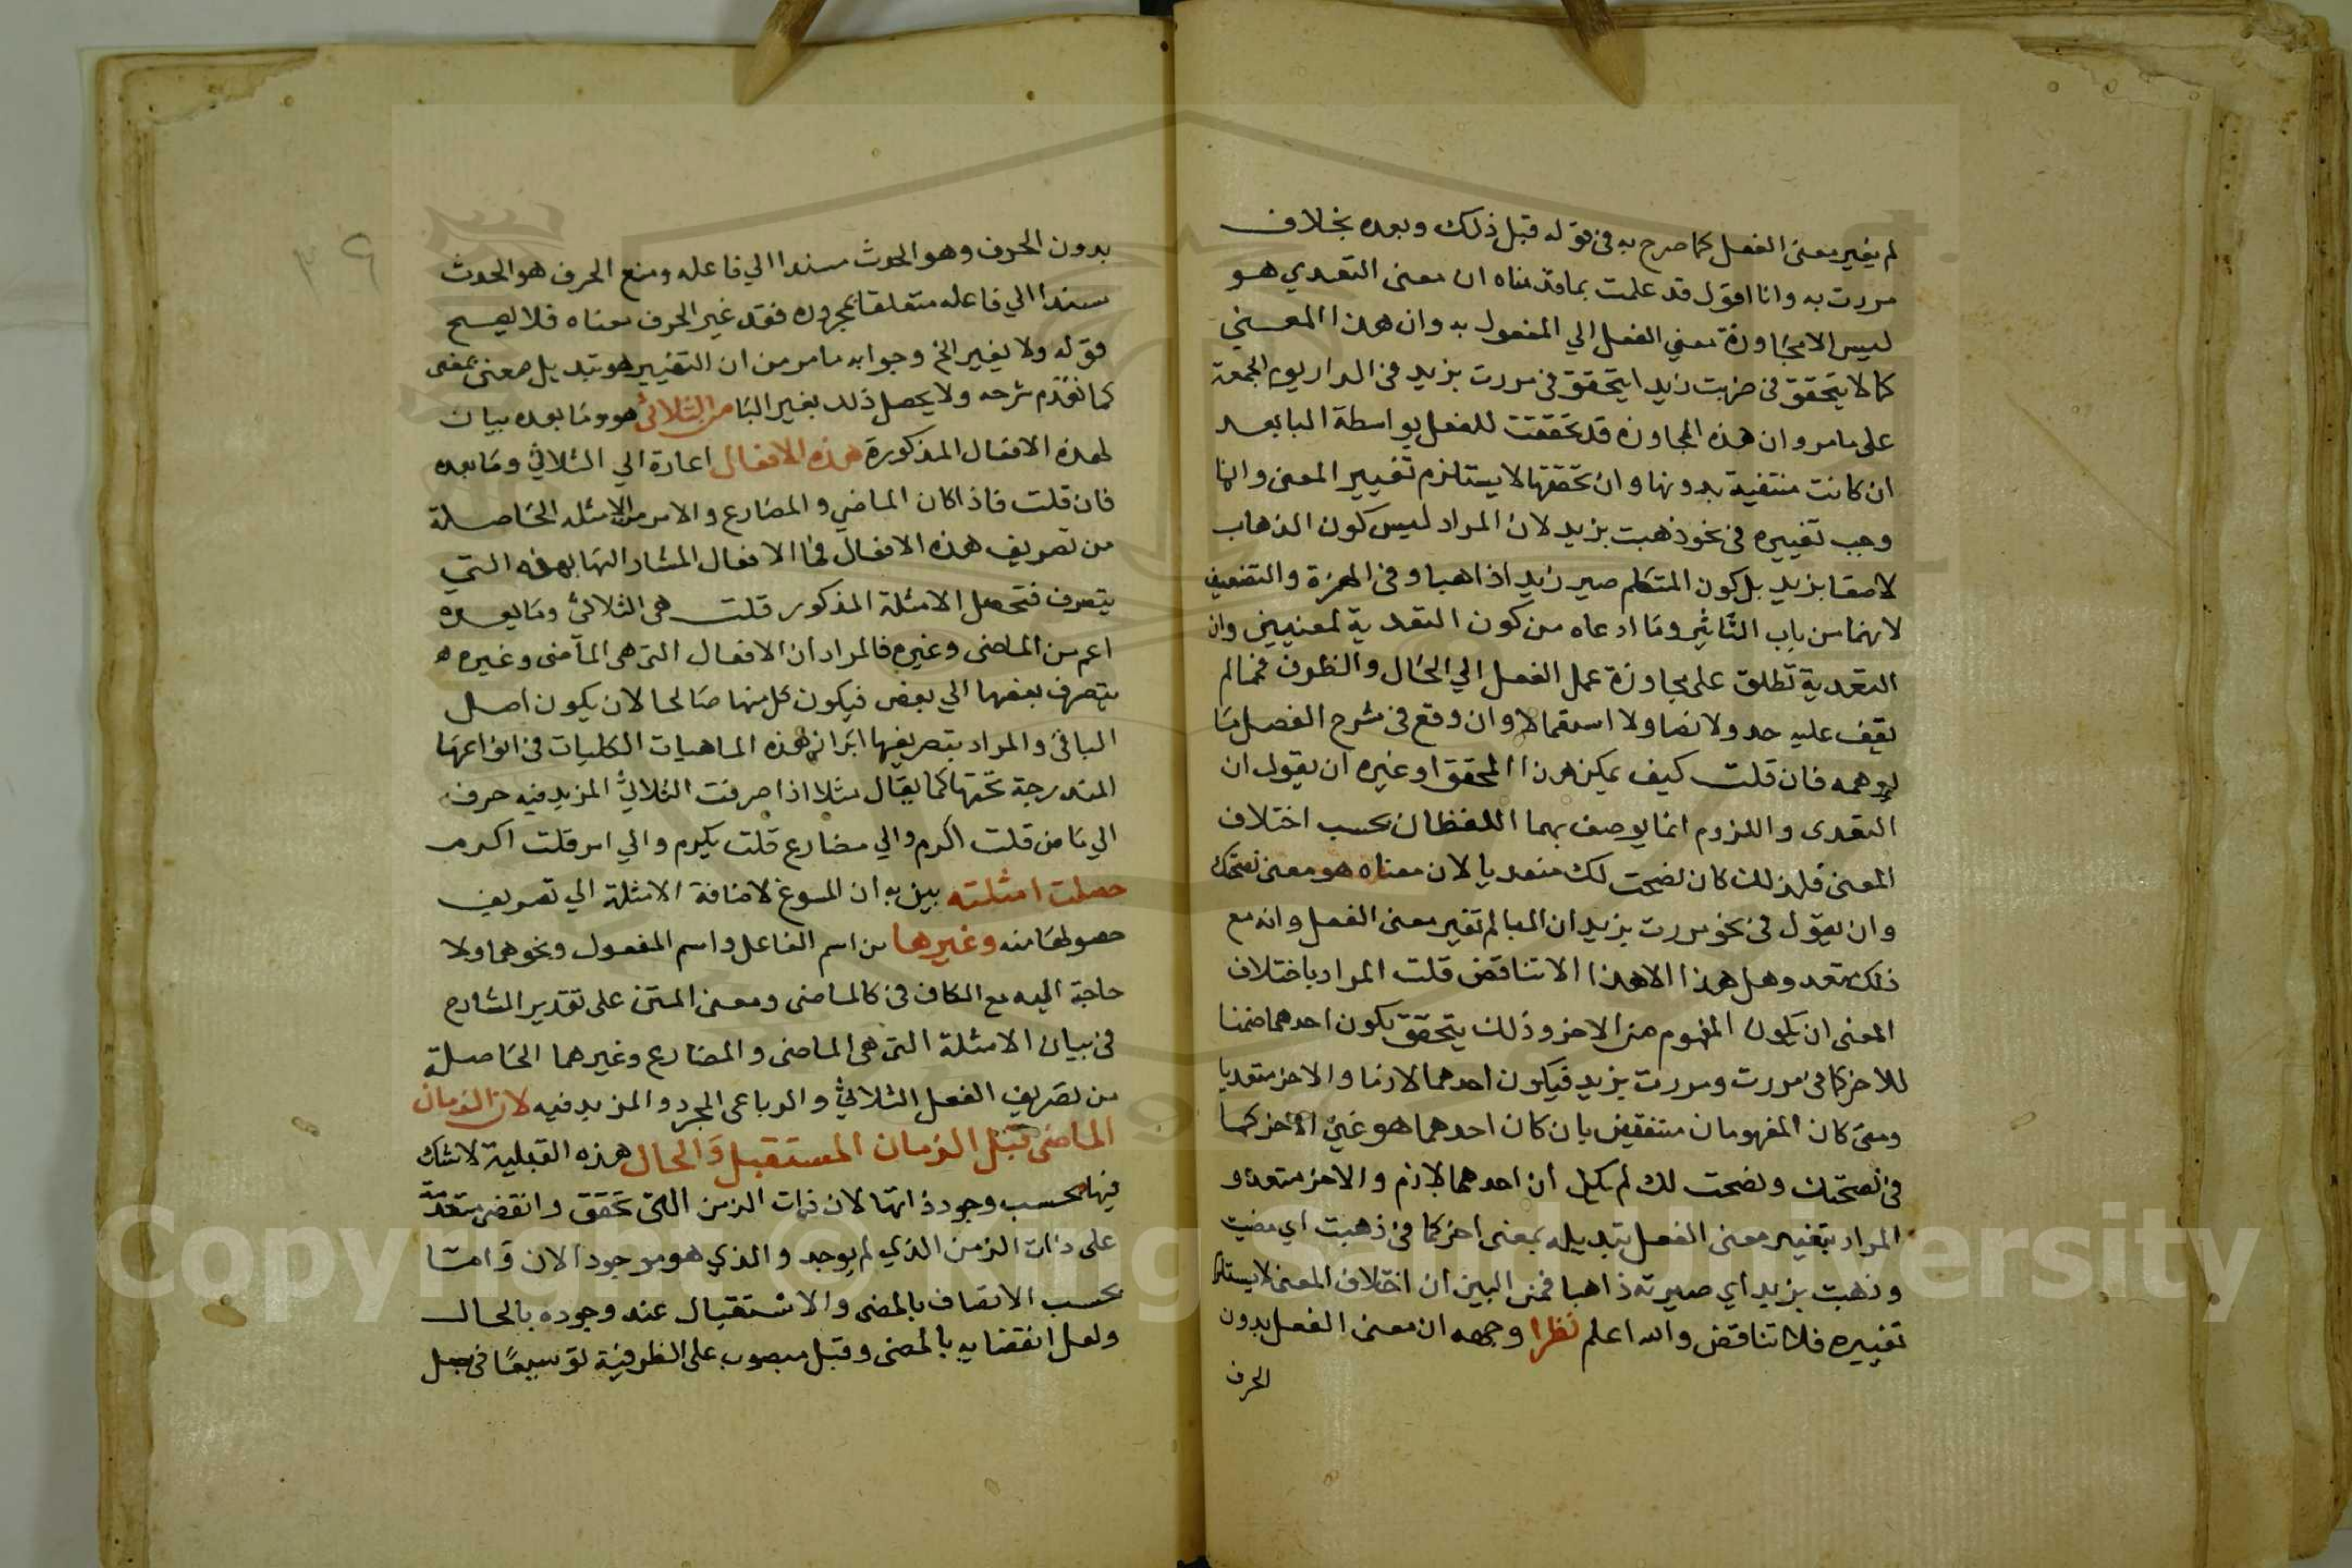 لم يغير معنى الفعل كما صرح به في قوله قبل ذلك وبعده بخلاف
مررت به وانا اقول قد علمت بما قدمناه ان معنى التعدي هو
ليس الا مجاوزة معني الفعل الي المفعول به وان هذا المعني
كما لا يتحقق في ضربت زيدا يتحقق في مررت بزيد في الدار يوم الجمعة
على ما مر وان هذه المجاوزه قد تحققت للفعل بواسطة البا بعد
ان كانت منتفية بدونها وان تحققها لا يستلزم تغيير المعنى وانما
وجب تغييره في نحو ذهبت بزيد لان المراد ليس كون الذهاب
لاصقا بزيد بل كون المتكلم صير زيدا ذاهبا وفي الهمزة والتضعيف
لانهما من باب التاثير وما ادعاه من كون التعدية لمعنيين وان
التعدية تطلق على مجاوزة عمل الفعل الي الحال والظرف فمما لم
يقف عليه حد ولا نصا ولا استعمالا وان وقع في شرح الفصل ما
يوهمه فان قلت كيف يمكن هذا المحقق او غيره ان يقول ان
التعدى واللزوم انما يوصف بهما اللفظان بحسب اختلاف
المعنى فلذلك كان نصحت لك متعديا لان معناه هو معنى نصحتك
وان يقول في نحو مررت بزيد ان البا لم تغير معنى الفعل وانه مع
ذلك متعد وهل هذا الا هذا الا تناقض قلت المراد باختلاف
المعنى ان يكون المفهوم من الاخر وذلك يتحقق بكون احدهما ضمنا
للاخر كما في مررت ومررت بزيد فيكون احدهما لازما والاخر متعديا
ومتى كان المفهومان متفقين بان كان احدهما هو عين الاخر كما
في نصحتك ونصحت لك لم يكن ان احدهما لازم والاخر متعد و
المراد بتغيير معنى الفعل تبديله بمعنى اخر كما في ذهبت اي مضيت
وذهبت بزيد اي صيرته ذاهبا فمن البين ان اختلاف المعنى لا يستلزم
تغييره فلا تناقض والله اعلم نظرا وجهه ان معنى الفعل بدون
الحرف
٣٩
بدون الحرف وهو الحدث مسندا الي فاعله ومع الحرف هو الحدث
مسندا الي فاعله متعلقا بمجروره فقد غير الحرف معناه فلا يصح
قوله ولا يغير الخ وجوابه ما مر من ان التغيير هو تبديل معنى بمعنى
كما تقدم شرحه ولا يحصل ذلك بغير البا من الثلاثي هو وما بعده بيان
لهذه الافعال المذكورة هذه الافعال اعادة الي الثلاثي وما بعده
فان قلت فاذا كان الماضي والمضارع والامر من الامثله الحاصلة
من تصريف هذه الافعال فما الافعال المشار اليها بهذه التي
يتصرف فتحصل الامثلة المذكور قلت هي الثلاثي وما بعده
اعم من الماضى وغيره فالمراد ان الافعال التي هي الماضى وغيره
يتصرف بعضها الي بعض فيكون كل منها صالحا لان يكون اصل
الباقي والمراد بتصريفها ابراز هذه الماهيات الكليات في انواعها
المندرجة تحتها كما يقال مثلا اذا صرفت الثلاثي المزيد فيه حرف
الي ماض قلت اكرم والي مضارع قلت يكرم والي امر قلت اكرم
حصلت امثلته بين به ان المسوغ لاضافة الامثلة الي تصريف
حصولها منه وغيرها من اسم الفاعل واسم المفعول ونحوهما ولا
حاجة اليه مع الكاف في كالماضى ومعنى المتن على تقدير الشارح
في بيان الامثلة التي هي الماضى والمضارع وغيرهما الحاصلة
من تصريف الفعل الثلاثي والرباعى المجرد والمزيد فيه لان الزمان
الماضى قبل الزمان المستقبل والحال هذه القبلية لا شك
فيها بحسب وجود ذاتها لان ذات الزمن التي تحقق وانقضى متقدمة
على ذات الزمن الذي لم يوجد والذي هو موجود الان واما
بحسب الاتصاف بالمضى والاستقبال عند وجوده بالحال
ولعل انقضايه بالمضى وقبل منصوب على الظرفية توسيعا في جعل
Copyright © King Saud University